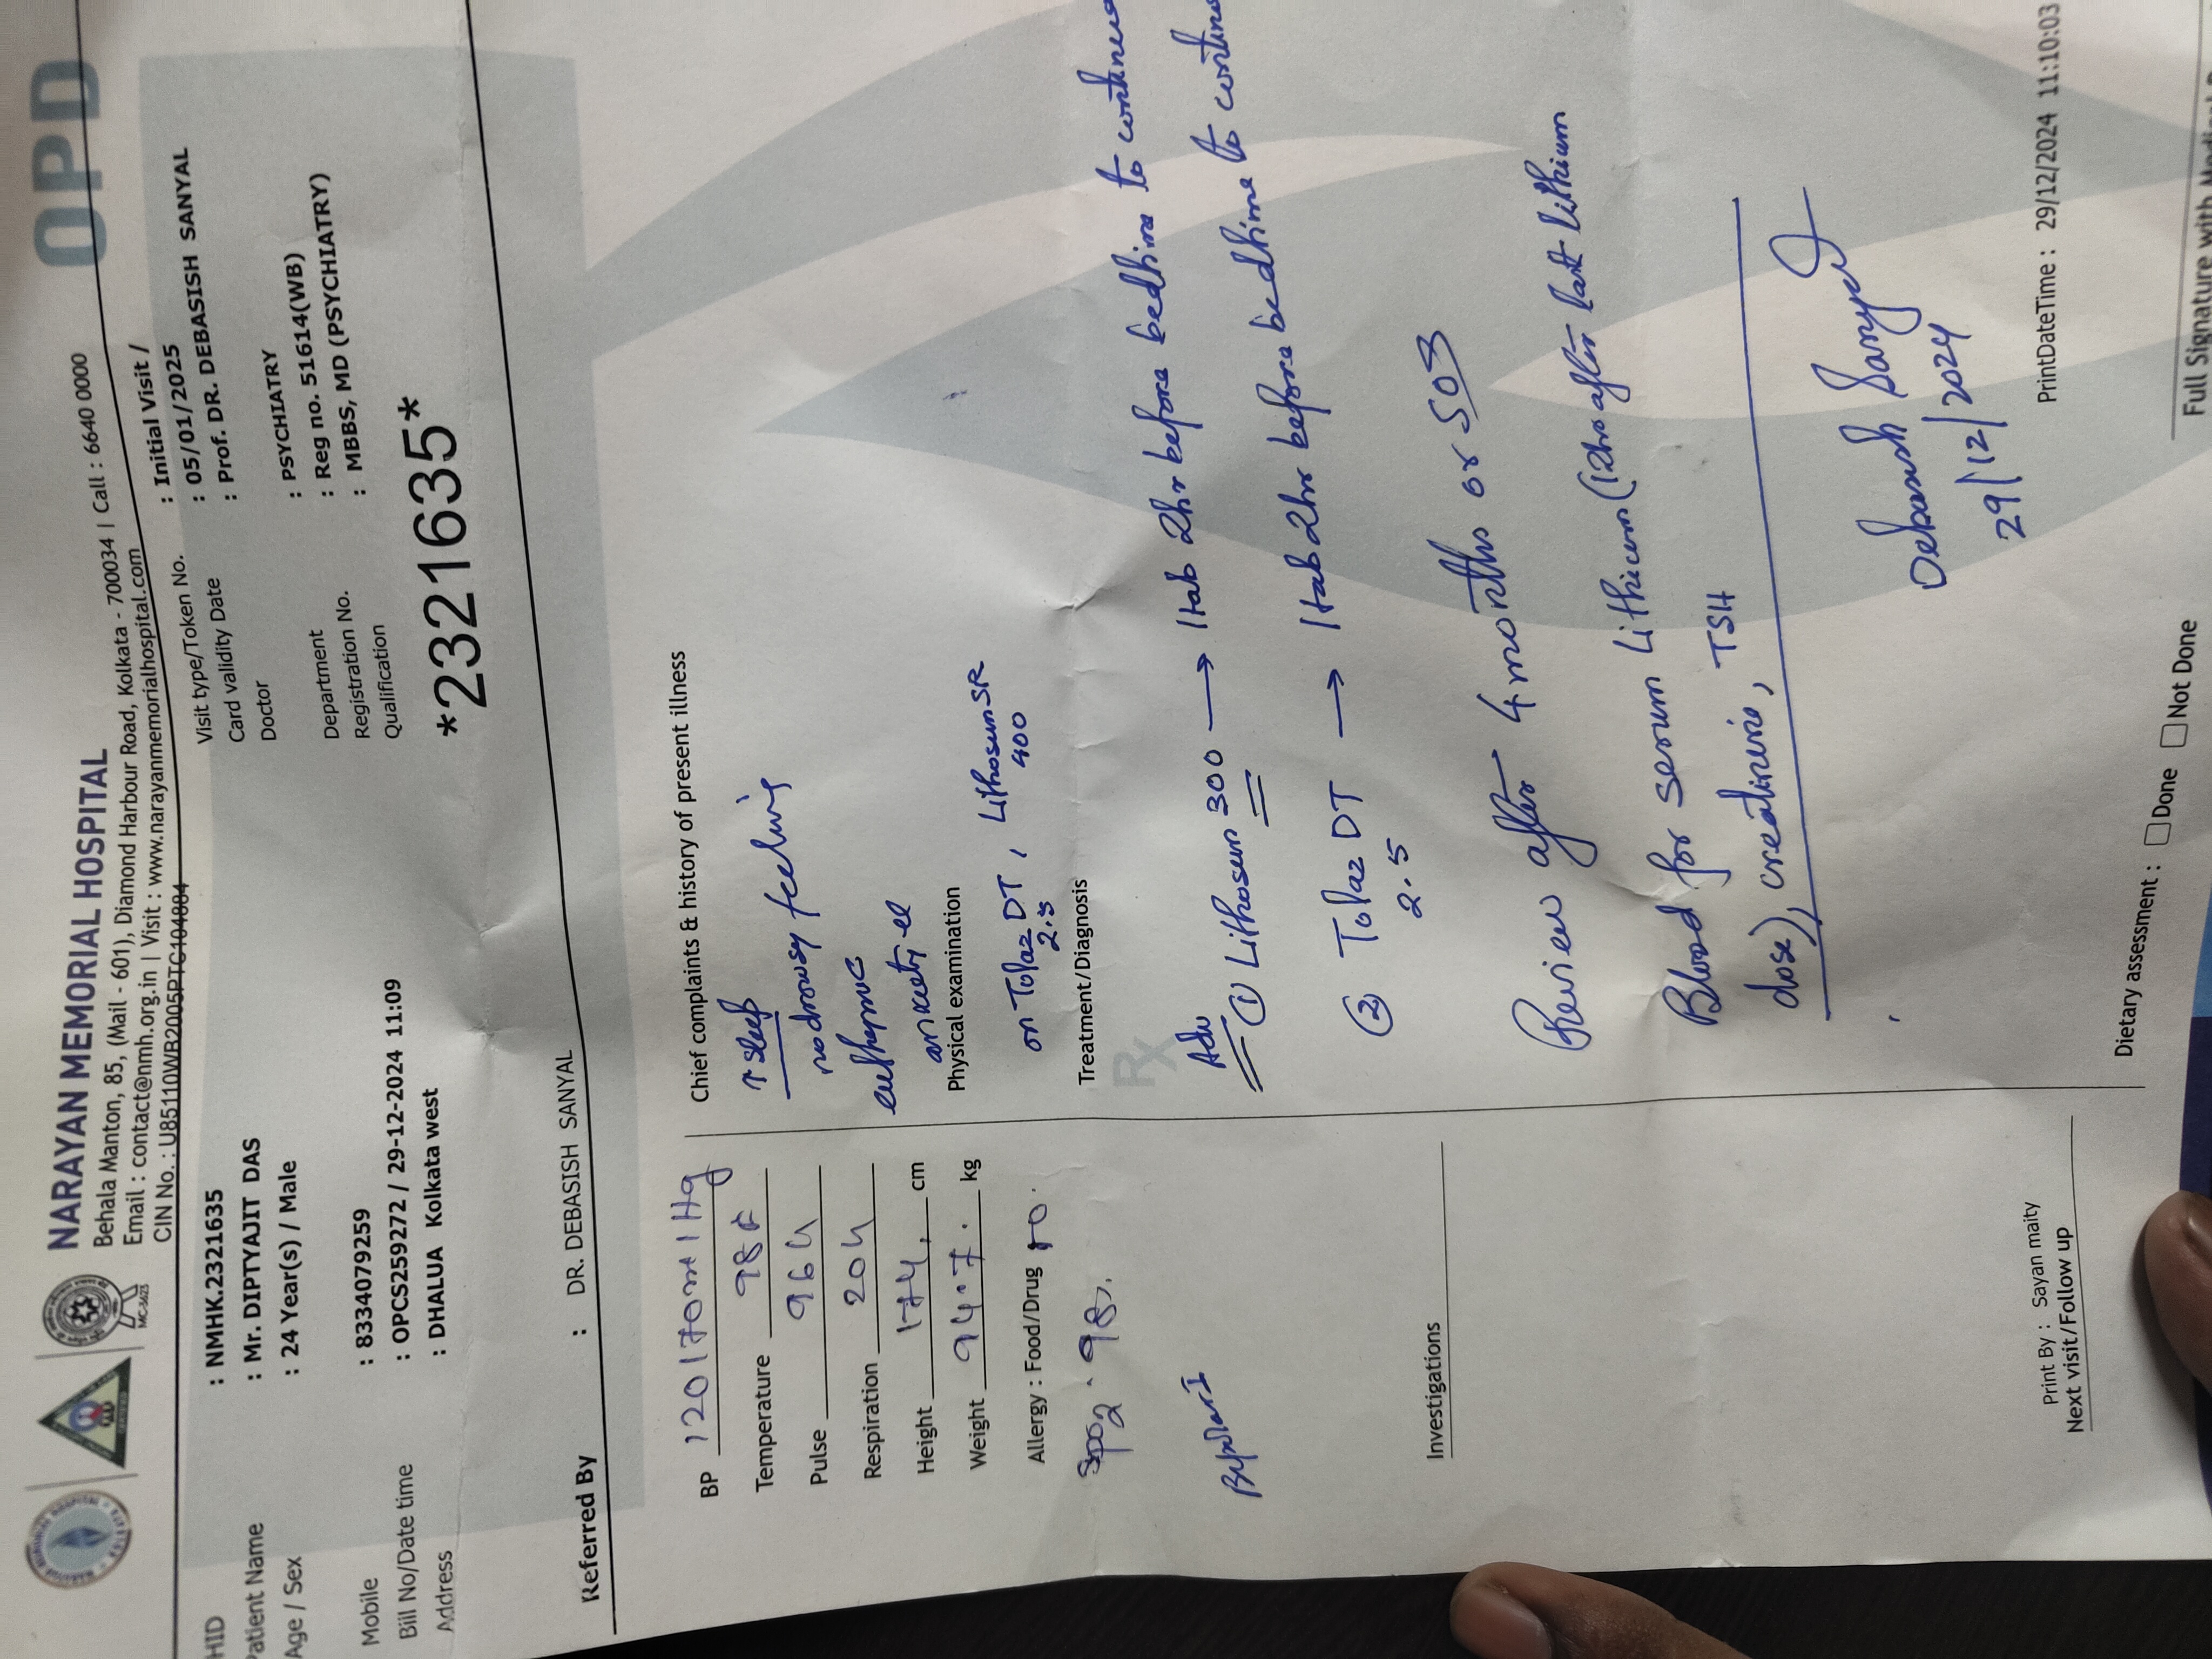 NARAYAN MEMORIAL HOSPITAL
OPD
Behala Manton, 85, (Mail - 601), Diamond Harbour Road, Kolkata - 700034 | Call : 6640 0000
Email : contact@nmh.org.in | Visit : www.narayanmemorialhospital.com
CIN No. : U85110WB2005PTC104884
MC-3623
HID : NMHK.2321635
Patient Name : Mr. DIPTYAJIT DAS
Age / Sex : 24 Year(s) / Male
Mobile : 8334079259
Bill No/Date time : OPCS259272 / 29-12-2024 11:09
Address : DHALUA Kolkata west
Visit type/Token No. : Initial Visit /
Card validity Date : 05/01/2025
Doctor : Prof. DR. DEBASISH SANYAL
Department : PSYCHIATRY
Registration No. : Reg no. 51614(WB)
Qualification : MBBS, MD (PSYCHIATRY)
*2321635*
Referred By : DR. DEBASISH SANYAL
BP 120/70
Temperature 98
Pulse 96
Respiration 20
Height 174 cm
Weight 94.7 kg
Allergy : Food/Drug no
SpO2 98
Bipolar I
Investigations
Chief complaints & history of present illness
↑ sleep
no drowsy feeling
euthymic
anxiety
Physical examination
on Tolaz DT 2.5, Lithosun SR 400
Treatment/Diagnosis
Rx
Adv
① Lithosun 300 → 1 tab 2hr before bedtime to continue
② Tolaz DT → 1 tab 2hr before bedtime to
2.5
Review after 4 months or SOS
Blood for serum Lithium (12hrs after last lithium
dose), creatinine, TSH
Debasish Sanyal
29/12/2024
Print By : Sayan maity
Next visit/Follow up
PrintDateTime : 29/12/2024 11:10:03
Dietary assessment : Done Not Done
Full Signature with